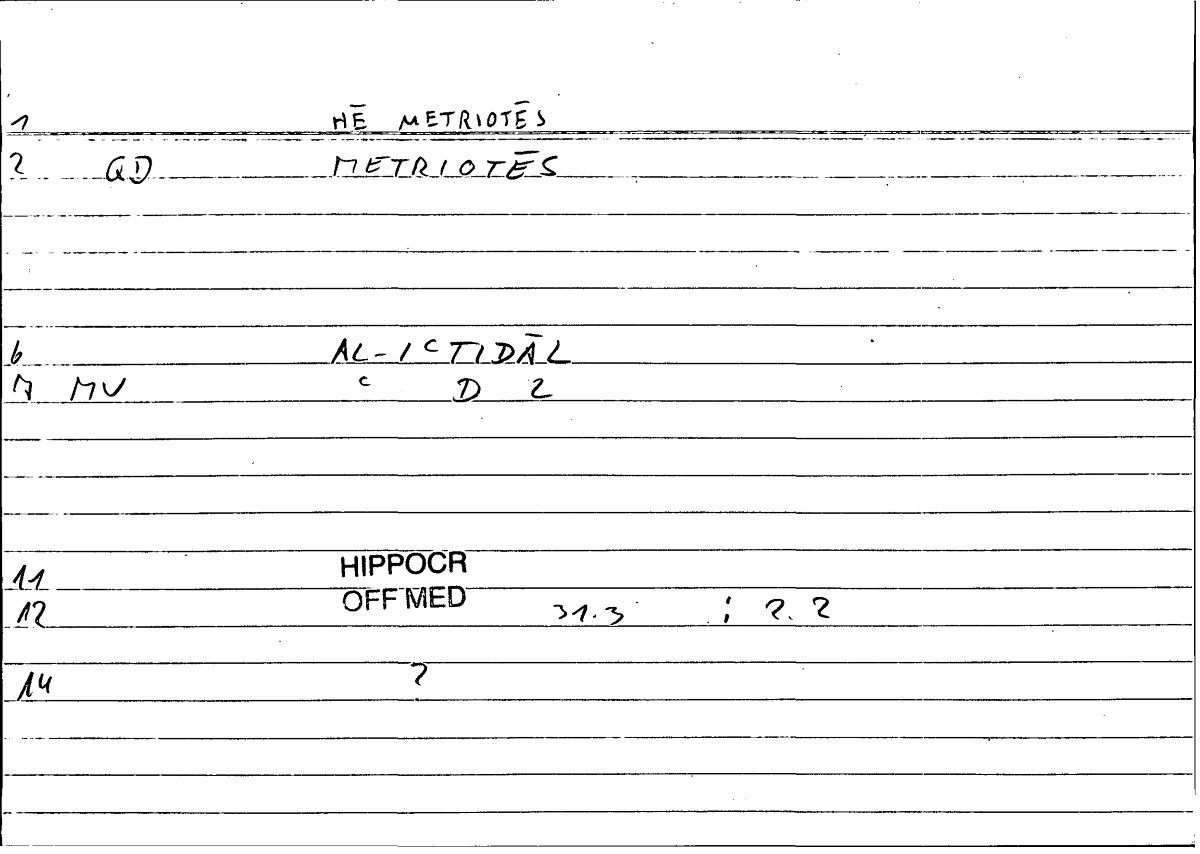 1 HĒ METRIOTĒS
2 QD METRIOTĒS
6 AL-IʿTIDĀL
7 MV ʿ D 2
11 HIPPOCR
12 OFF MED 31.3 ; 2. 2
14 ?